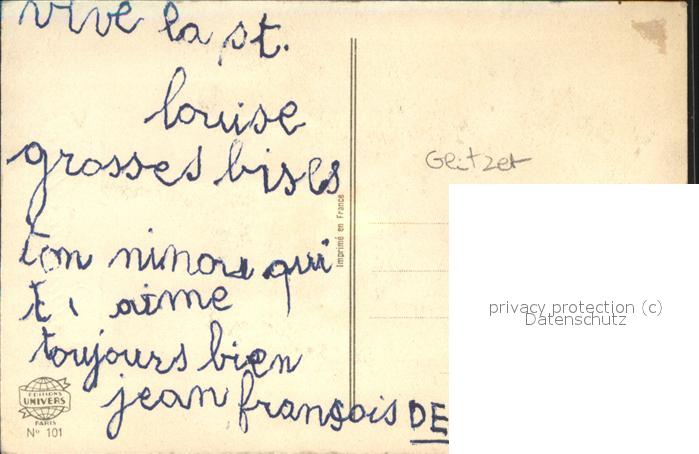 vive la st.
louise
grosses bises
ton ninou qui
t' aime
toujours bien
jean fransois DE
Glitzer
Imprimé en France
privacy protection (c)
Datenschutz
EDITIONS
UNIVERS
PARIS
No 101